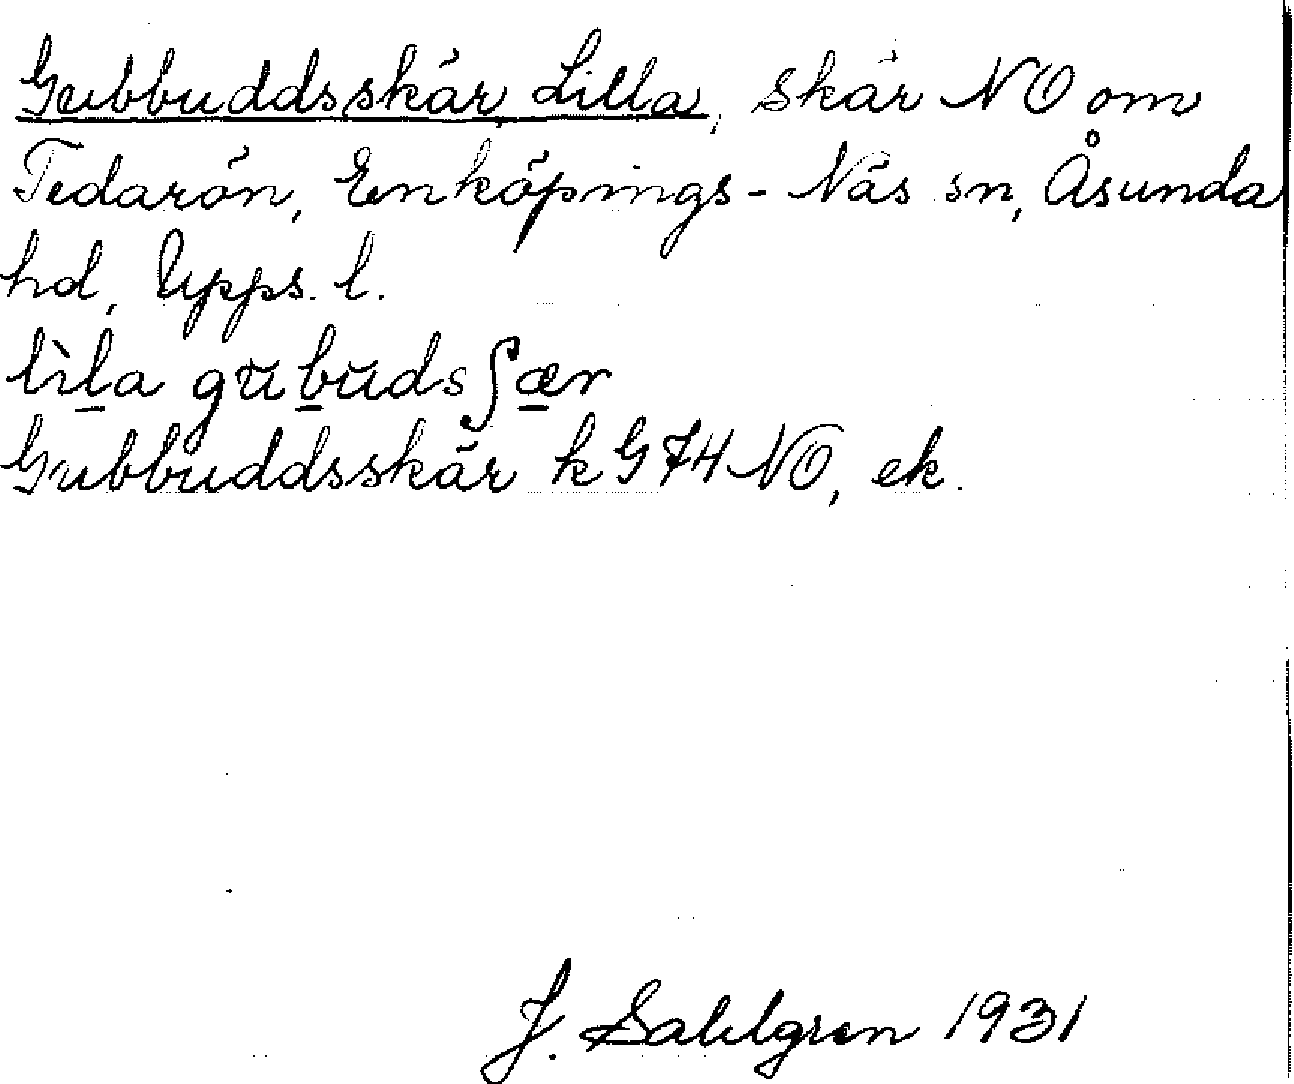 Gubbuddsskär, Lilla, skär NO om
Tedarön, Enköpings-Näs sn, Åsunda
hd, Upps. l.
Gubbuddsskär k G 74 NO, ek.
J. Sahlgren 1931